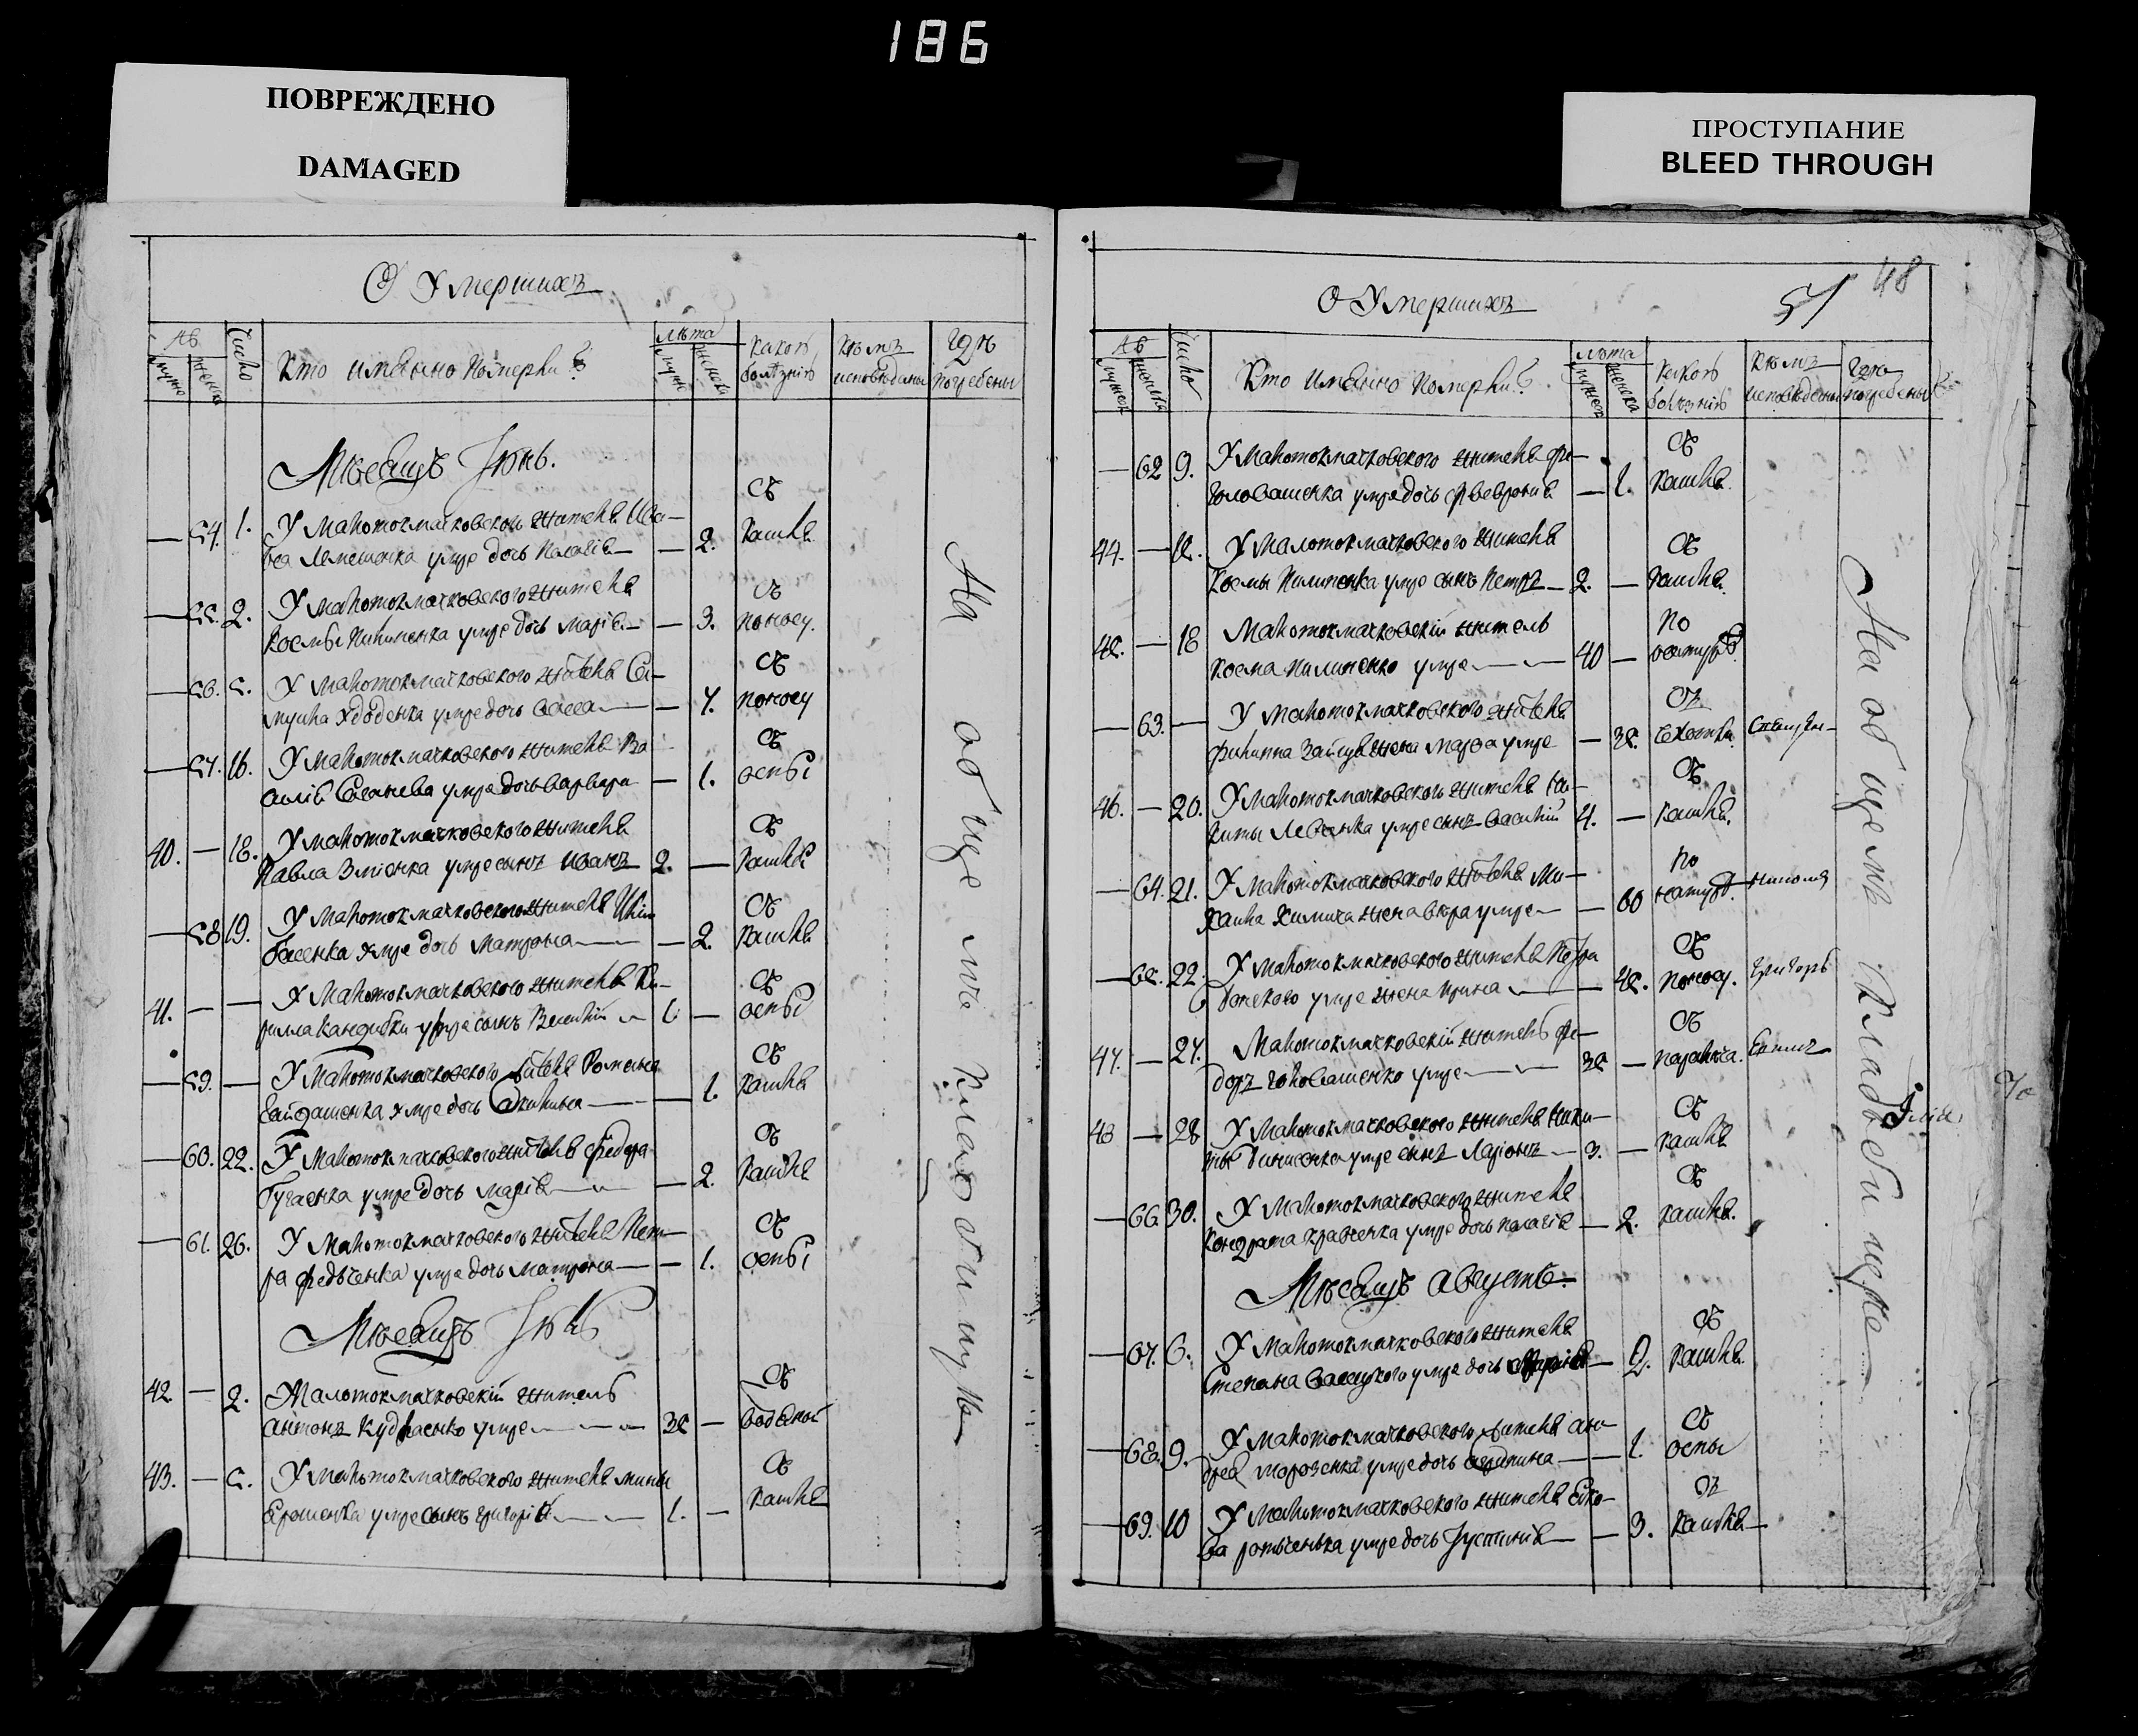 186
ПОВРЕЖДЕНО
DAMAGED
ПРОСТУПАНИЕ
BLEED THROUGH
О Умершихъ
Число
Кто имянно померли?
лѣта
какою болѣзнію
кѣмъ исповѣданы
гдѣ погребены
Мѣсяцъ Іюнь.
54. 1. У малотокмачковского жителя Ива-
умре дочь Палагія — 2. Съ кашля
55. 2. У малотокмачковского жителя
Космы Пилипенка умре дочь Марія — 3. Съ поносу.
56. 5. У малотокмачковского жителя Са-
муила умре дочь Васса — 7. Съ поносу
57. 16. У малотокмачковского жителя Ва-
силія умре дочь Варвара — 1. Съ оспы
40. — 18. У малотокмачковского жителя
Павла Зміенка умре сынъ Иванъ 2. — Съ кашля
58 19. У малотокмачковского жителя
умре дочь Матрона — 2. Съ кашля
41. — — У малотокмачковского жителя Ки-
рила Кандибки умре сынъ Василій 1. — Съ оспы
59. — У малотокмачковского жителя Романа
Гайдашенка умре дочь Акилина — 1. Съ кашля
60. 22. У малотокмачковского жителя Федора
Бугаенка умре дочь Марія — 2. Съ кашля
61. 26. У малотокмачковского жителя Пет-
ра Федченка умре дочь Матрона — 1. Съ оспы
Мѣсяцъ Іюль
42 — 2. Малотокмачковскій житель
Антонъ умре — 35 — Съ водяной
43. — 5. У малотокмачковского жителя Мины
Ерошенка умре сынъ Григорій — 1. — Съ кашля
На общемъ кладбищѣ
О Умершихъ
57 48
Число
Кто имянно померли?
лѣта
какою болѣзнію
кѣмъ исповѣданы
гдѣ погребены
62 9. У малотокмачковского жителя Фе-
Головашенка умре дочь Февронія — 1. Съ кашля.
44. — 15. У малотокмачковского жителя
Космы Пилипенка умре сынъ Петръ — 2. — Съ кашля.
45. — 18 Малотокмачковскій житель
Косма Пилипенко умре — 40 — По
63. — У малотокмачковского жителя
Филиппа Зайца жена Марфа умре — 35. Съ
46. — 20. У малотокмачковского жителя Ни-
киты Левенка умре сынъ Василій 4. — Съ кашля.
64. 21. У малотокмачковского жителя Ми-
хаила Химича жена Вѣра умре — 60 По натурѣ.
65. 22. У малотокмачковского жителя Петра
Донского умре жена Ирина — 45. Съ поносу. Григорь
47. — 27. Малотокмачковскій житель Фе-
доръ Головашенко умре — 35 — Съ паралича.
48 — 28 У малотокмачковского жителя Ники-
ты умре сынъ Ларіонъ — 3. — Съ кашля
66. 30. У малотокмачковского жителя
Кондрата Кравченка умре дочь Палагія — 2. Съ кашля.
Мѣсяцъ Августъ.
67. 6. У малотокмачковского жителя
Степана умре дочь Марія — 2. Съ кашля.
68. 9. У малотокмачковского жителя Ан-
дрея Морозенка умре дочь — 1. Съ оспы
69. 10 У малотокмачковского жителя Яко-
ва умре дочь Іустинія — 3. Съ кашля
На общемъ кладбищѣ